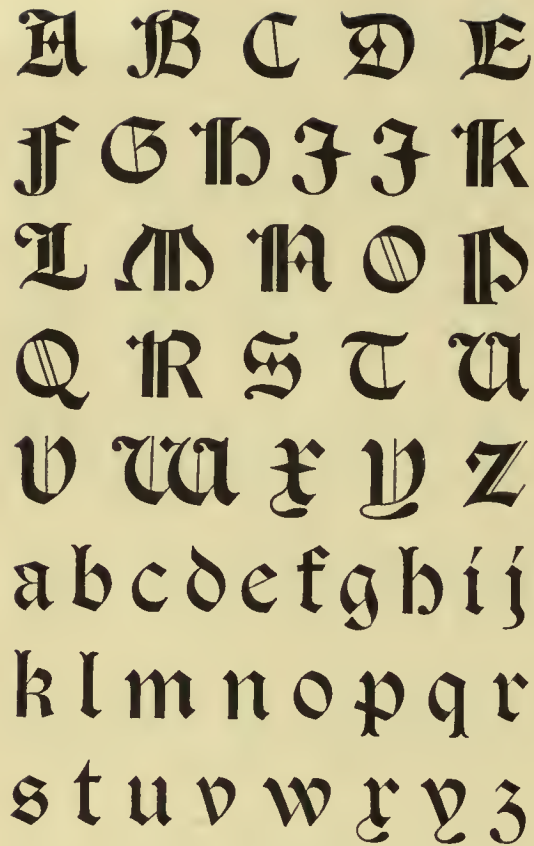 A B C D E
F G H I J K
L M N O P
Q R S T U
V W X Y Z
a b c d e f g h i j
k l m n o p q r
s t u v w x y z